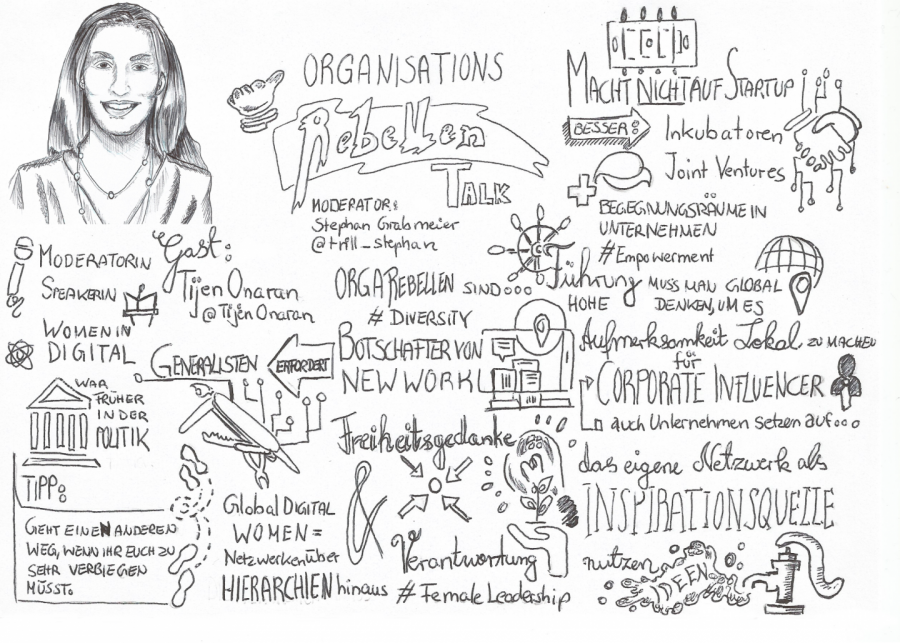 ORGANISATIONS
Rebellen
TALK
MODERATOR:
Stephan Grabmeier
@trill_stephan
Gast:
Tijen Onaran
@Tijen Onaran
MODERATORIN
SPEAKERIN
WOMEN IN
DIGITAL
WAR
FRÜHER
IN DER
POLITIK
TIPP:
GEHT EINEN ANDEREN
WEG, WENN IHR EUCH ZU
SEHR VERBIEGEN
MÜSST.
GENERALISTEN
ERFORDERT
Global DIGITAL
WOMEN =
Netzwerken über
HIERARCHIEN hinaus
ORGAREBELLEN SIND...
# DIVERSITY
BOTSCHAFTER VON
NEW WORK!
Freiheitsgedanke
&
Verantwortung
# Female Leadership
MACHT NICHT AUF STARTUP
BESSER:
Inkubatoren
Joint Ventures
BEGEGNUNGSRÄUME IN
UNTERNEHMEN
#Empowerment
Führung MUSS MAN GLOBAL
HOHE DENKEN, UM ES
Aufmerksamkeit Lokal ZU MACHEN
für
CORPORATE INFLUENCER
auch Unternehmen setzen auf...
das eigene Netzwerk als
INSPIRATIONSQUELLE
nutzen
IDEEN